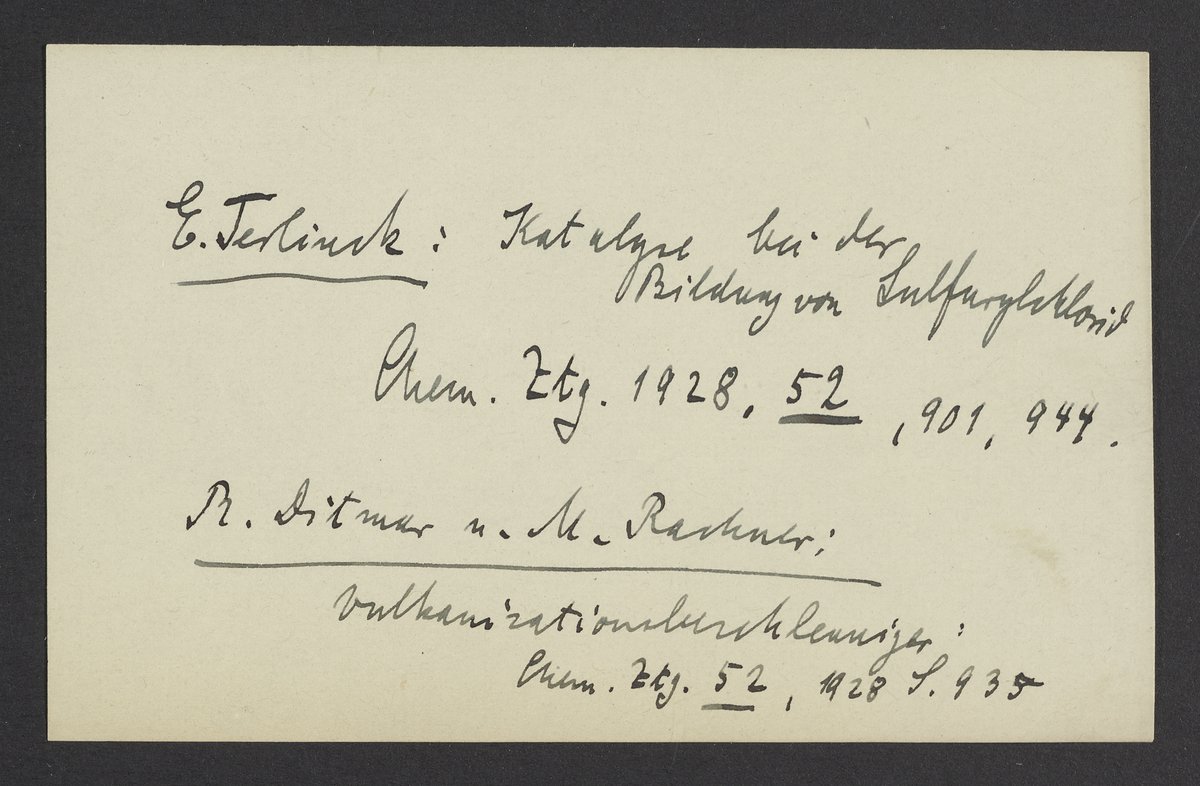 E. Terlinck: Katalyse bei der
Bildung von Sulfurylchlorid
Chem. Ztg. 1928, 52, 901, 944.
R. Ditmar u. M. Rachner:
Vulkanisationsbeschleuniger:
Chem. Ztg. 52, 1928 S. 935